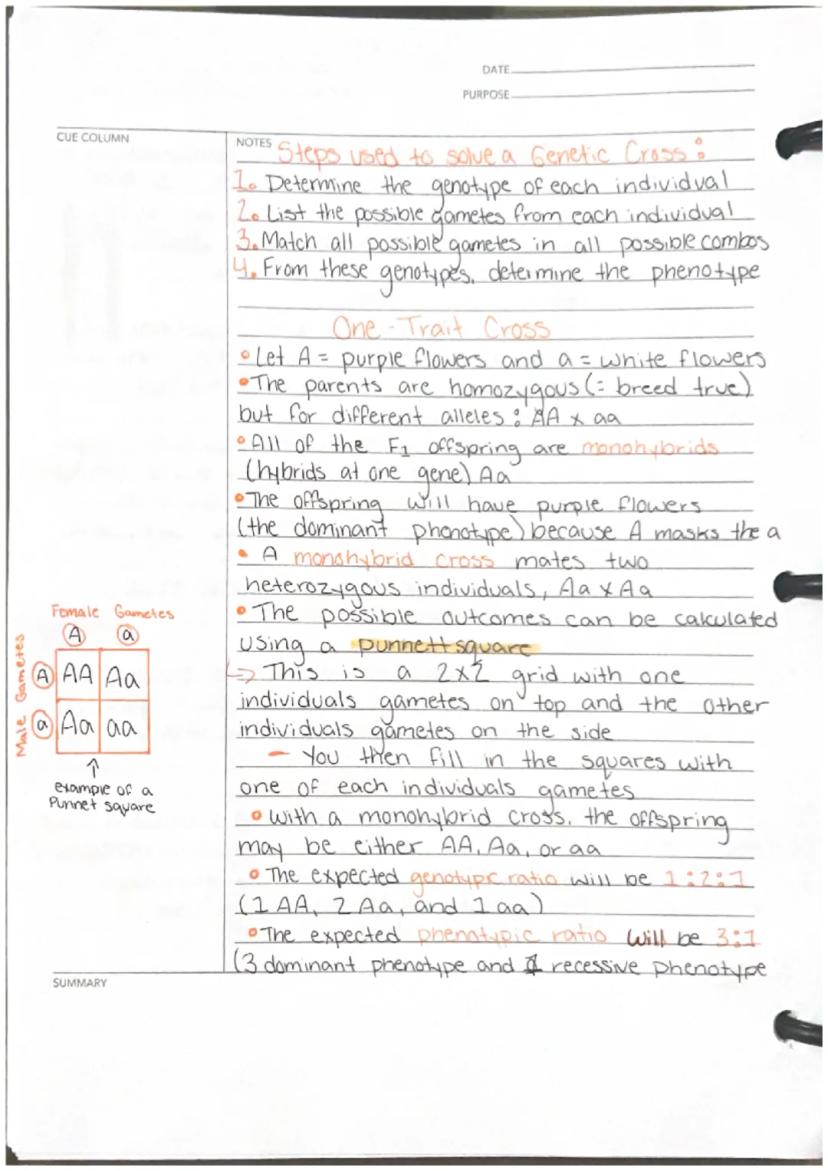 DATE
PURPOSE
CUE COLUMN
NOTES
Steps used to solve a Genetic Cross:
1. Determine the genotype of each individual
2. List the possible gametes from each individual
3. Match all possible gametes in all possible combos
4. From these genotypes, determine the phenotype
One-Trait Cross
• Let A = purple flowers and a = white flowers
• The parents are homozygous (= breed true)
but for different alleles: AA x aa
• All of the F1 offspring are monohybrids
(hybrids at one gene) Aa
• The offspring will have purple flowers
(the dominant phonotype) because A masks the a
• A monohybrid cross mates two
heterozygous individuals, Aa x Aa
• The possible outcomes can be calculated
using a punnett square
↳ This is a 2x2 grid with one
individuals gametes on top and the other
individuals gametes on the side
- You then fill in the squares with
one of each individuals gametes
• With a monohybrid cross, the offspring
may be either AA, Aa, or aa
• The expected genotypic ratio will be 1:2:1
(1 AA, 2 Aa, and 1 aa)
• The expected phenotypic ratio will be 3:1
(3 dominant phenotype and 1 recessive phenotype
Female Gametes
A a
Male Gametes
A AA Aa
a Aa aa
↑
example of a
Punnet square
SUMMARY